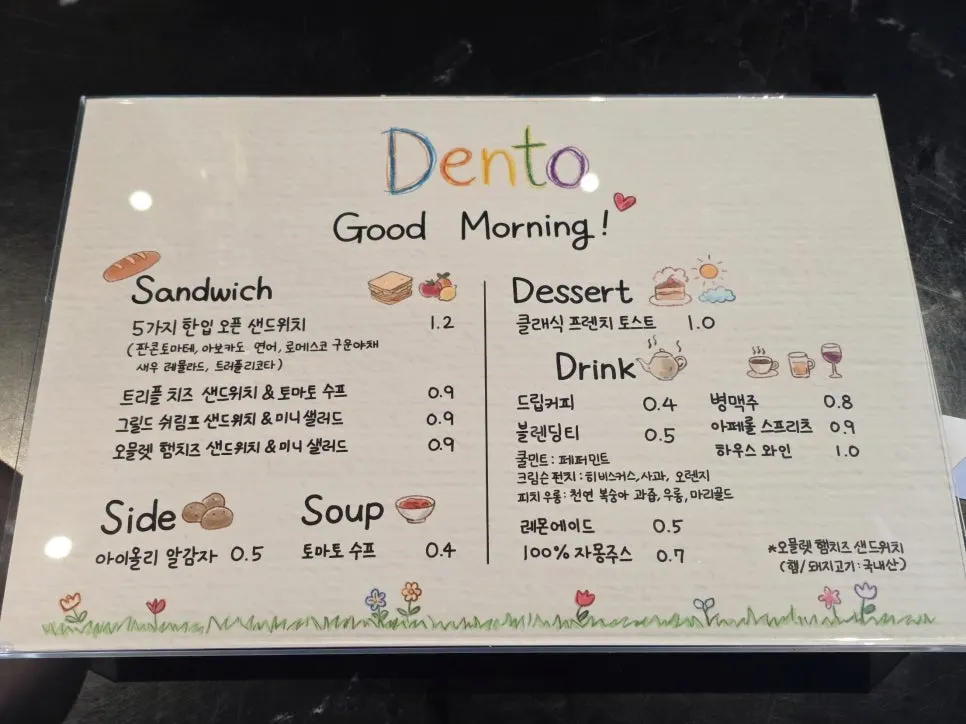 Dento
Good Morning!
Sandwich
5가지 한입 오픈 샌드위치 1.2
(판콘토마테, 아보카도 연어, 로메스코 구운야채
새우 레물라드, 트러플리코타)
트리플 치즈 샌드위치 & 토마토 수프 0.9
그릴드 쉬림프 샌드위치 & 미니 샐러드 0.9
오믈렛 햄치즈 샌드위치 & 미니 샐러드 0.9
Side
아이올리 알감자 0.5
Soup
토마토 수프 0.4
Dessert
클래식 프렌치 토스트 1.0
Drink
드립커피 0.4
블렌딩티 0.5
쿨민트 : 페퍼민트
크림슨 펀치 : 히비스커스, 사과, 오렌지
피치우롱 : 천연 복숭아 과즙, 우롱, 마리골드
레몬에이드 0.5
100% 자몽주스 0.7
병맥주 0.8
아페롤 스프리츠 0.9
하우스 와인 1.0
*오믈렛 햄치즈 샌드위치
(햄/돼지고기 : 국내산)